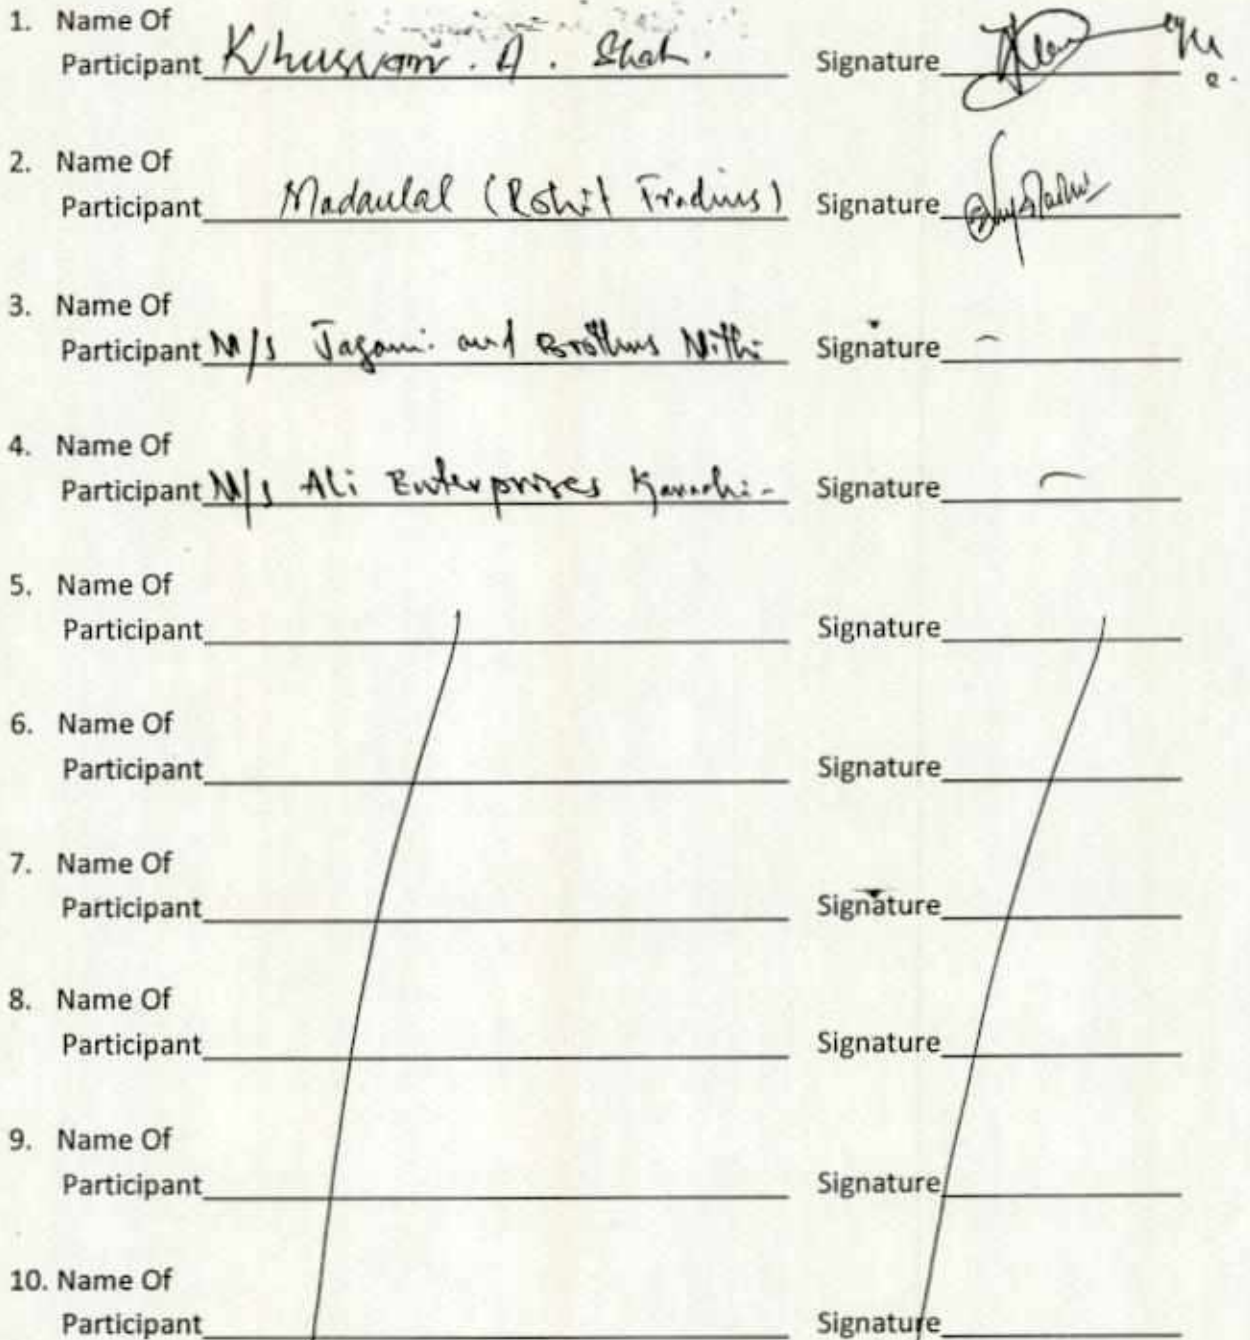 1. Name Of
Participant Khurram . A . Shah . Signature
2. Name Of
Participant Madanlal (Rohit Traders) Signature
3. Name Of
Participant M/s Jagani and Brothers Mithi Signature -
4. Name Of
Participant M/s Ali Enterprises Karachi - Signature -
5. Name Of
Participant Signature
6. Name Of
Participant Signature
7. Name Of
Participant Signature
8. Name Of
Participant Signature
9. Name Of
Participant Signature
10. Name Of
Participant Signature